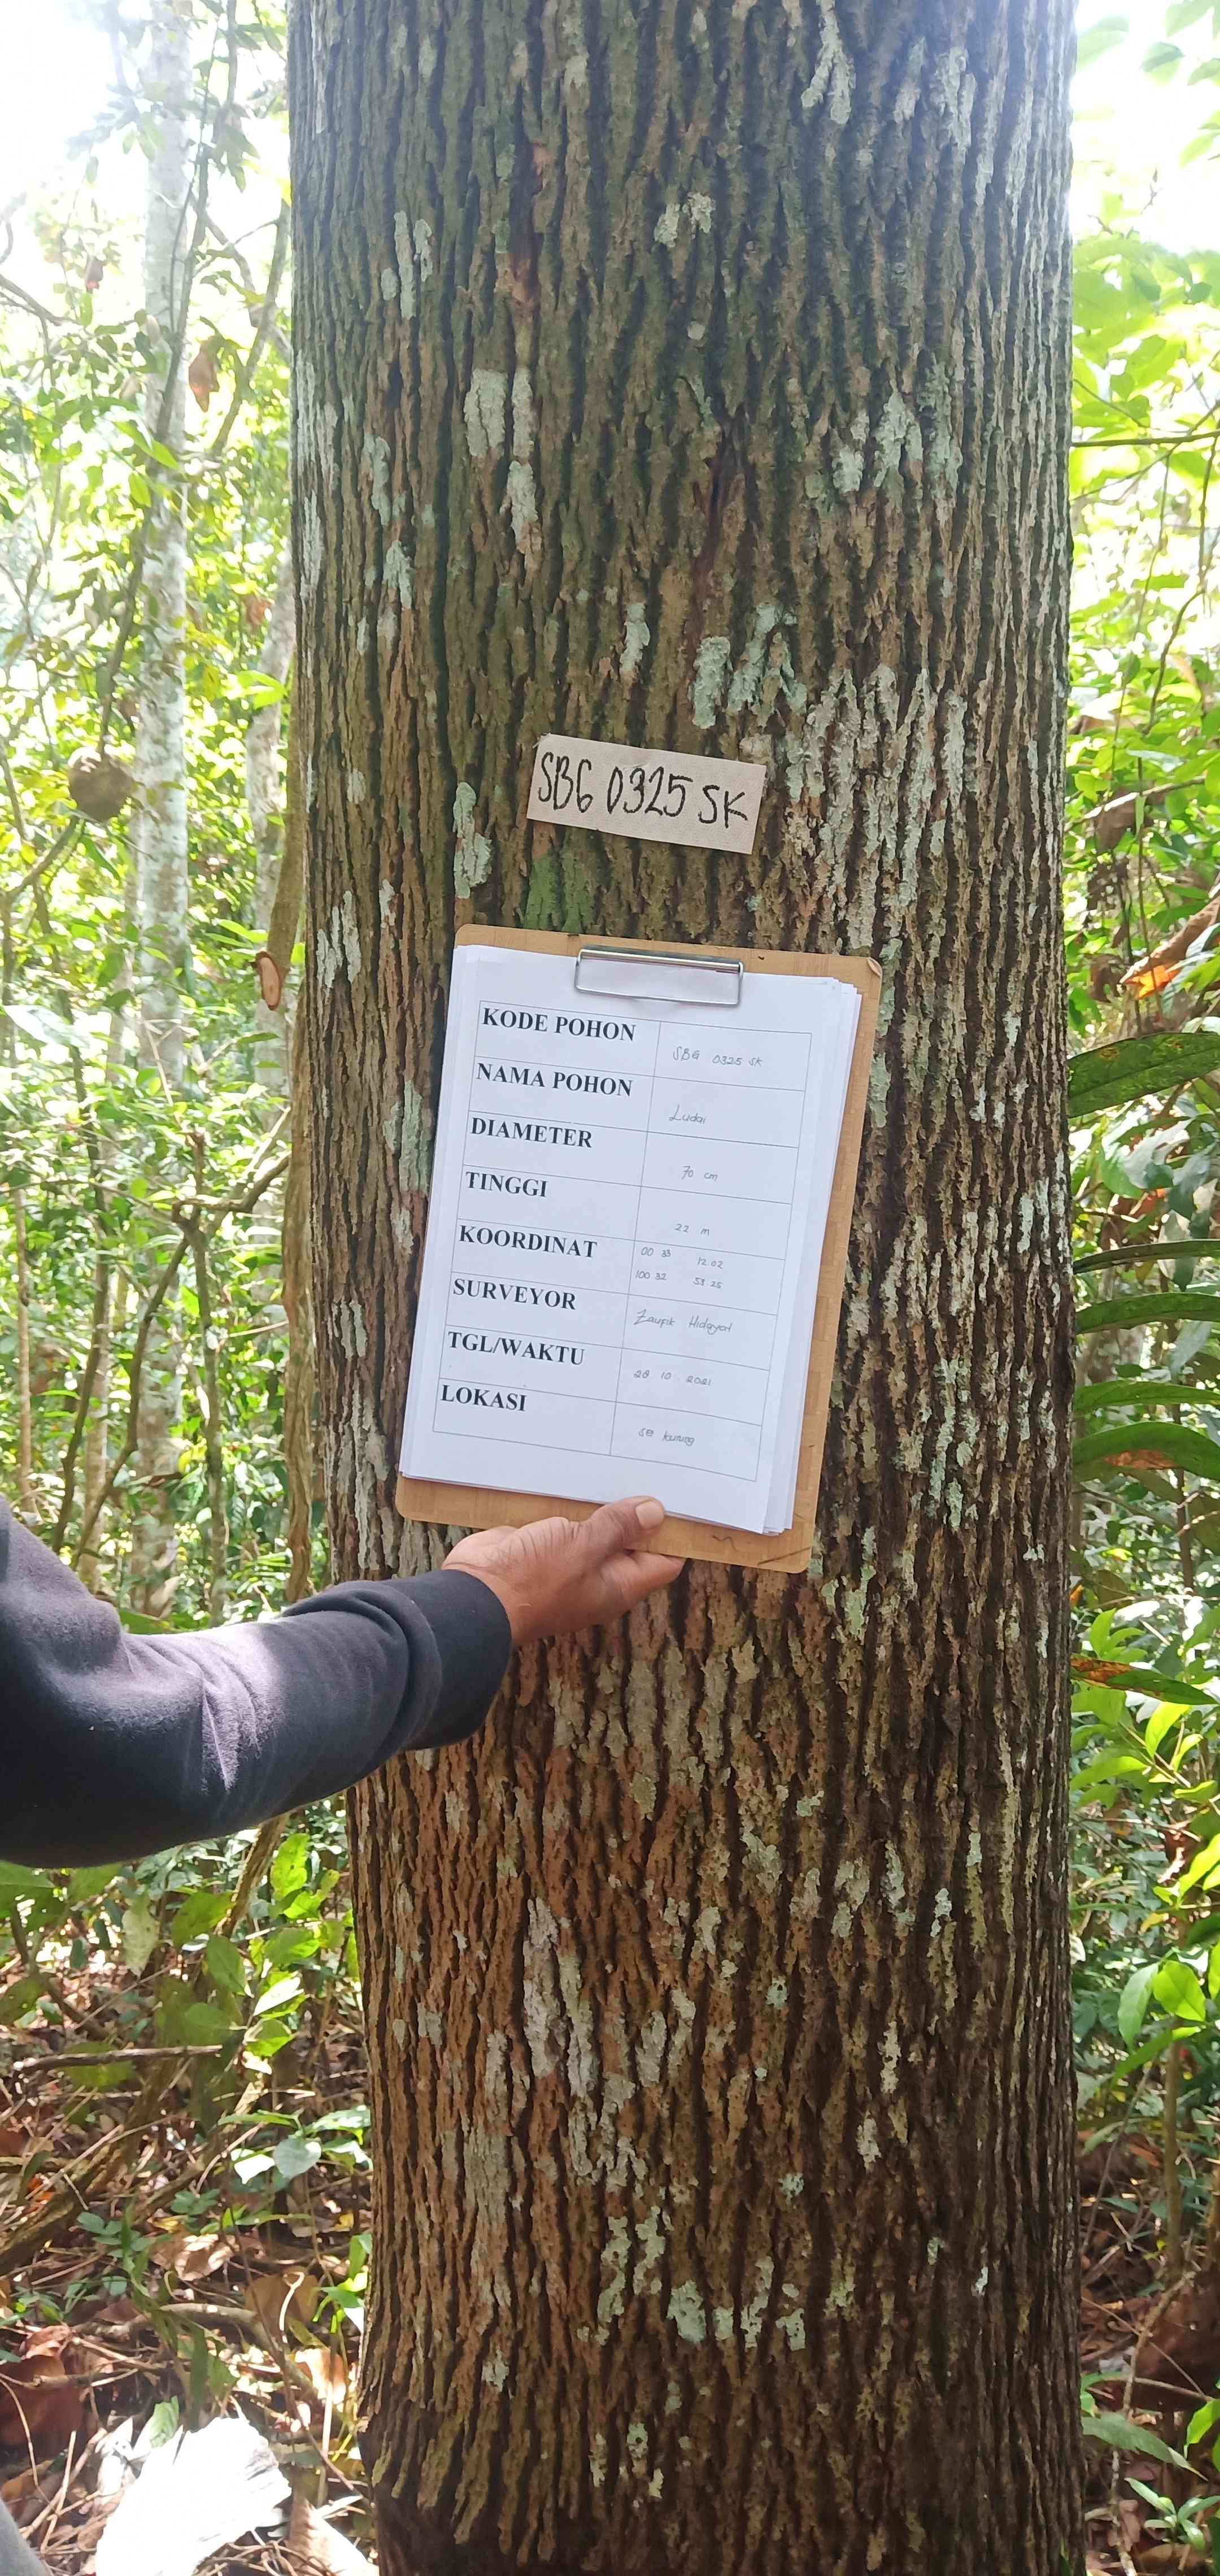 SBG 0325 SK
KODE POHON SBG 0325 SK
NAMA POHON Ludai
DIAMETER 70 cm
TINGGI 22 m
KOORDINAT 00 33 12.02
100 32 53 25
SURVEYOR Zaupik Hidayat
TGL/WAKTU 28 10 2021
LOKASI sei kuning